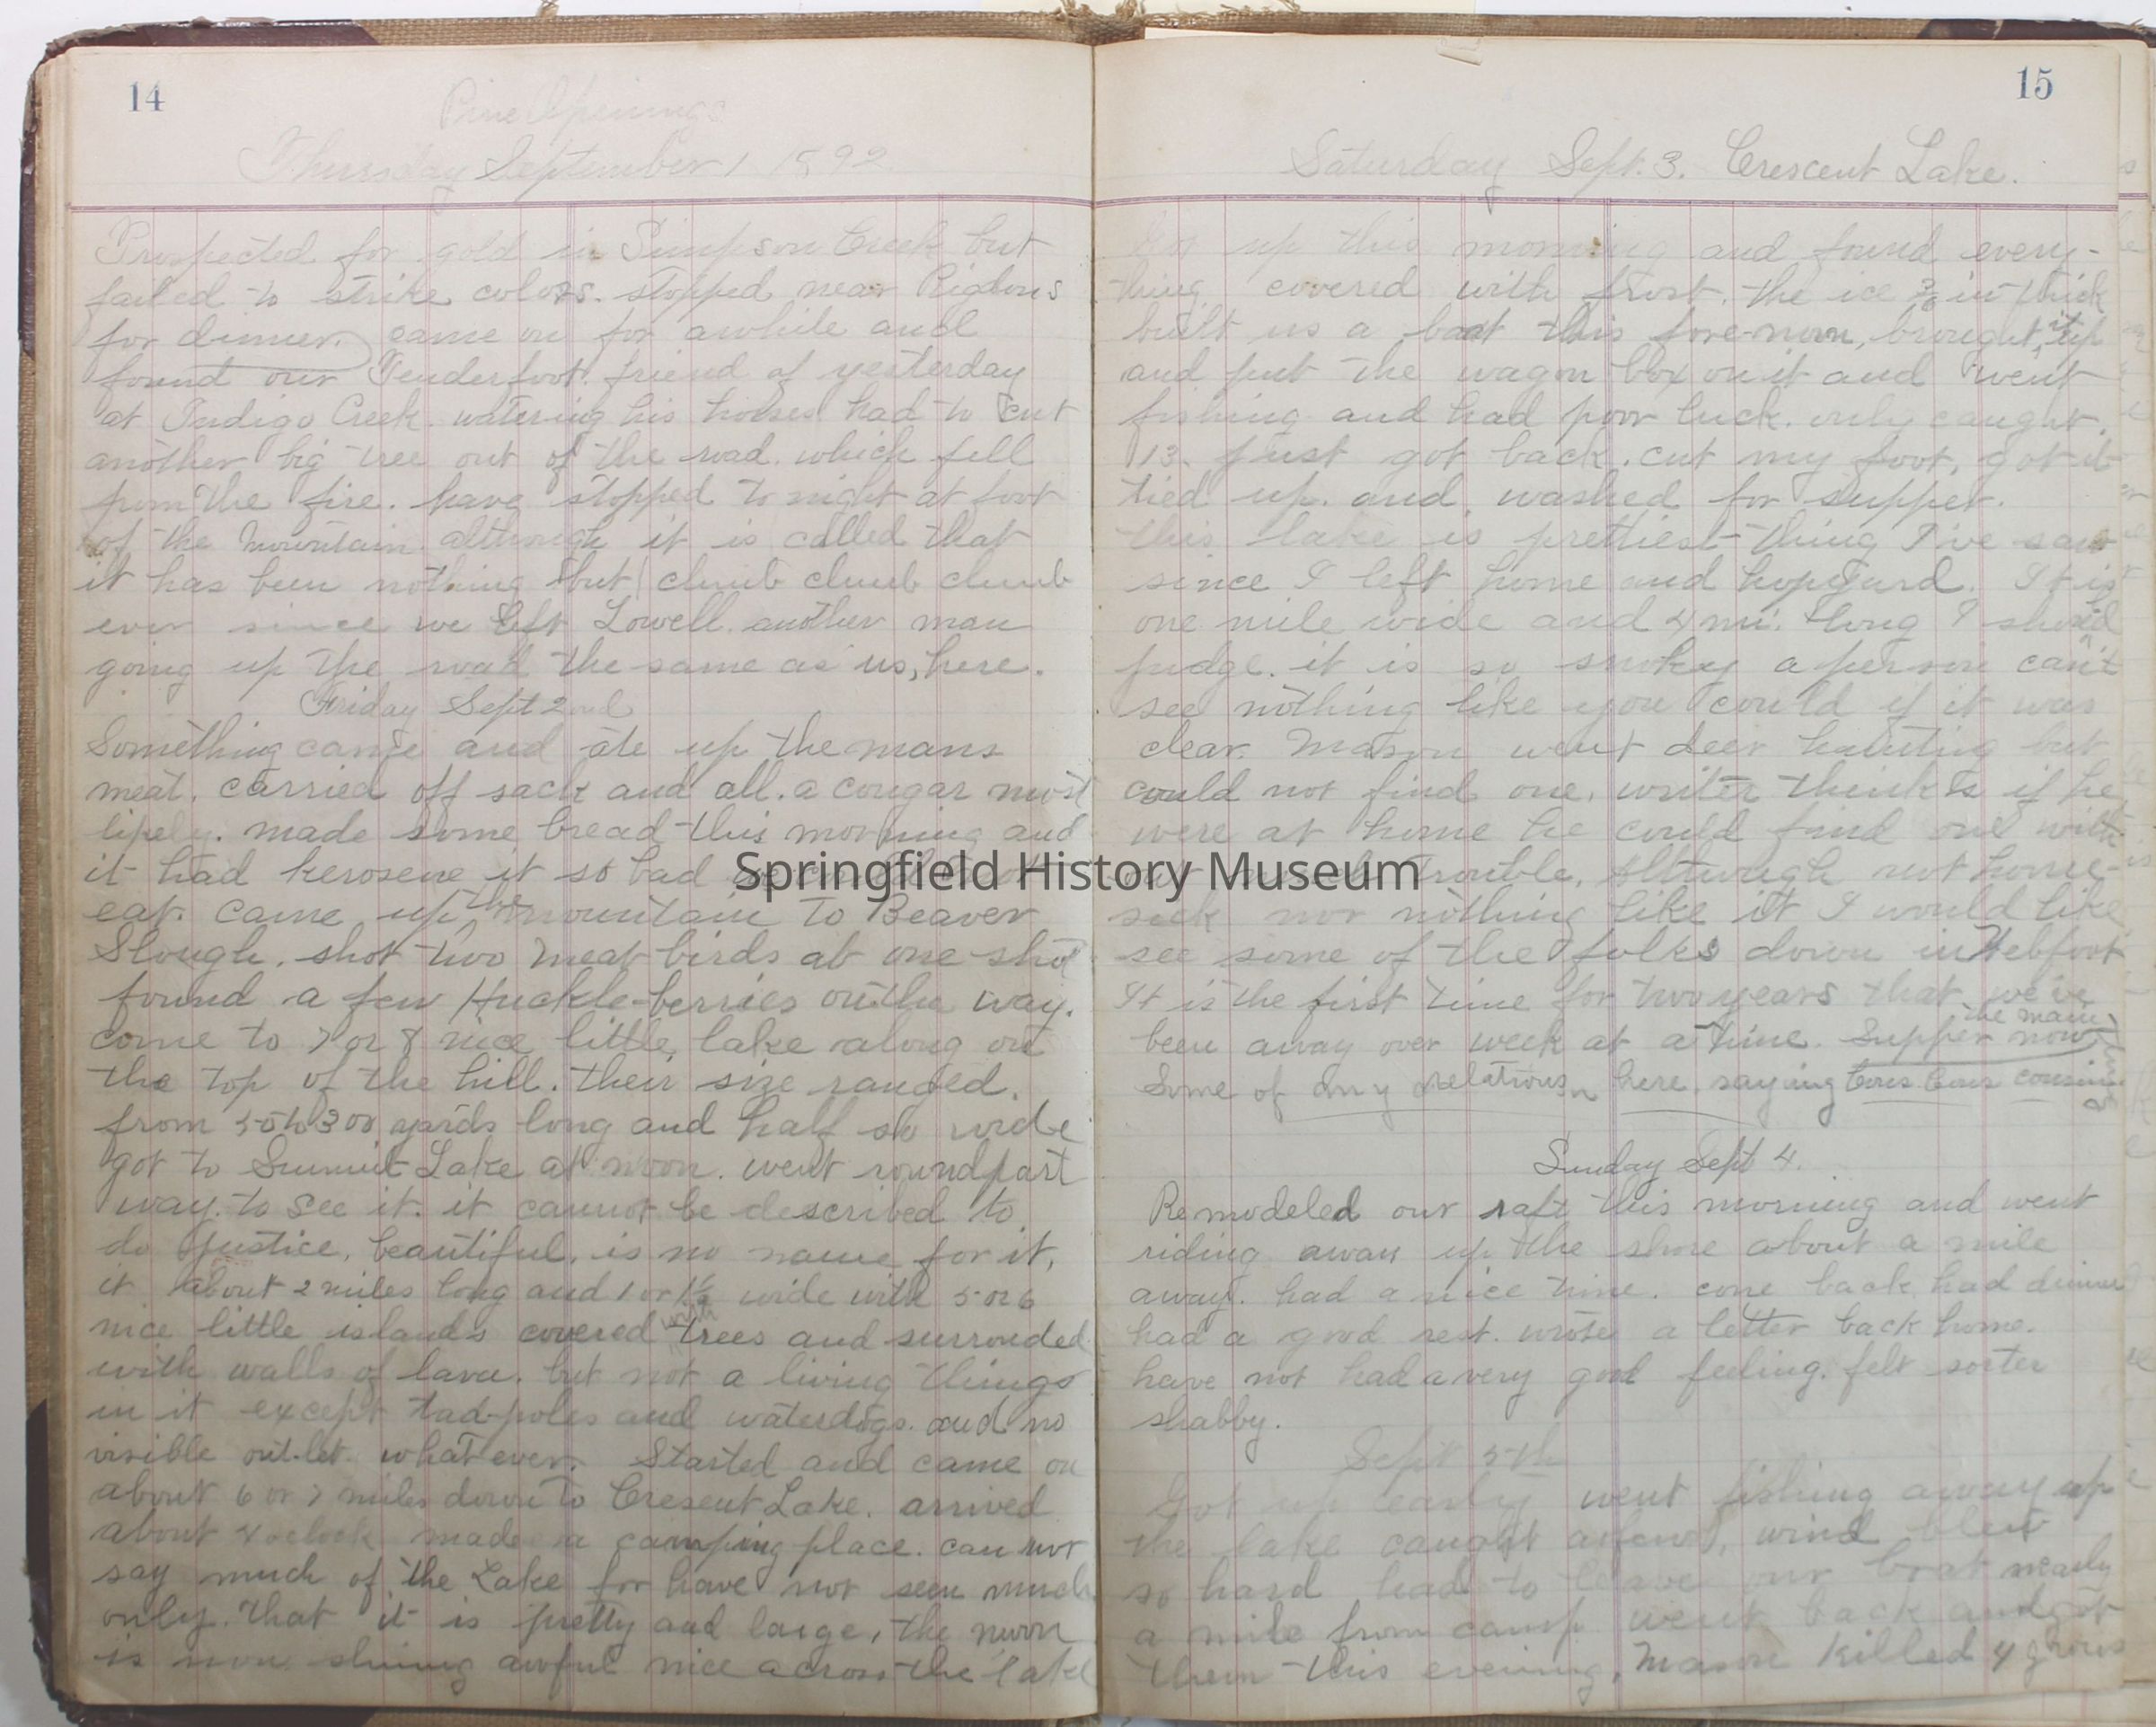 14
Pine Openings
Thursday September 1 1892
Prospected for gold in Simpson Creek but
failed to strike colors. stopped near Rigdons
for dinner. came on for awhile and
found our Tenderfoot friend of yesterday
at Indigo Creek watering his horses had to cut
another big tree out of the road. which fell
from the fire. have stopped to night at foot
of the Mountain. although it is called that
it has been nothing but climb climb climb
ever since we left Lowell. another man
going up the road the same as us, here.
Friday Sept 2nd
Something came and ate up the mans
meat. carried off sack and all. a cougar most
likely. made some bread this morning and
it had kerosene it so bad
eat. came up the mountain to Beaver
Slough. shot two meat birds at one shot
found a few Huckle-berries on the way.
come to 7 or 8 nice little lake along on
the top of the hill. their size ranged.
from 50 to 300 yards long and half so wide
got to Summit Lake at noon. went round part
way. to see it. it cannot be described to
do justice, beautiful, is no name for it,
it about 2 miles long and 1 or 1½ wide with 5 or 6
nice little islands covered with trees and surrouded
with walls of lava. but not a living things
in it except tad-poles and waterdogs. and no
visible out-let what ever. Started and came on
about 6 or 7 miles down to Cresent Lake. arrived
about 4 oclock made a camping place. can not
say much of the Lake for have not seen much
only. that it is pretty and large, the moon
is now shining awful nice across the lake
15
Saturday Sept. 3. Crescent Lake.
Got up this morning and found every-
thing covered with frost. the ice 3/8 in thick
built us a boat this fore-noon, brought it up
and put the wagon box on it and went
fishing and had poor luck. only caught
13. Just got back. cut my foot, got it
tied up. and washed for supper.
this lake is prettiest thing I've saw
since I left home and hopyard. It is
one mile wide and 4 mi. long I should
judge. it is so smoky a person can't
see nothing like you could if it was
clear. Mason went deer hunting but
could not find one. writer thinks if he
were at home he could find one with-
out trouble. Although not home-
sick nor nothing like it I would like
see some of the folks down in Webfoot
It is the first time for two years that we've
been away over week at a time. Supper now the main thing
Some of my relations here. saying cous cous cousin
Sunday Sept 4.
Remodeled our raft this morning and went
riding away up the shore about a mile
away. had a nice time. come back had dinner
had a good rest. wrote a letter back home.
have not had a very good feeling. felt sorter
shabby.
Sept 5th
Got up early went fishing away up
the lake caught a few, wind blew
so hard had to leave our boat nearly
a mile from camp went back and got
them this evening, Mason killed 4 grous
Springfield History Museum